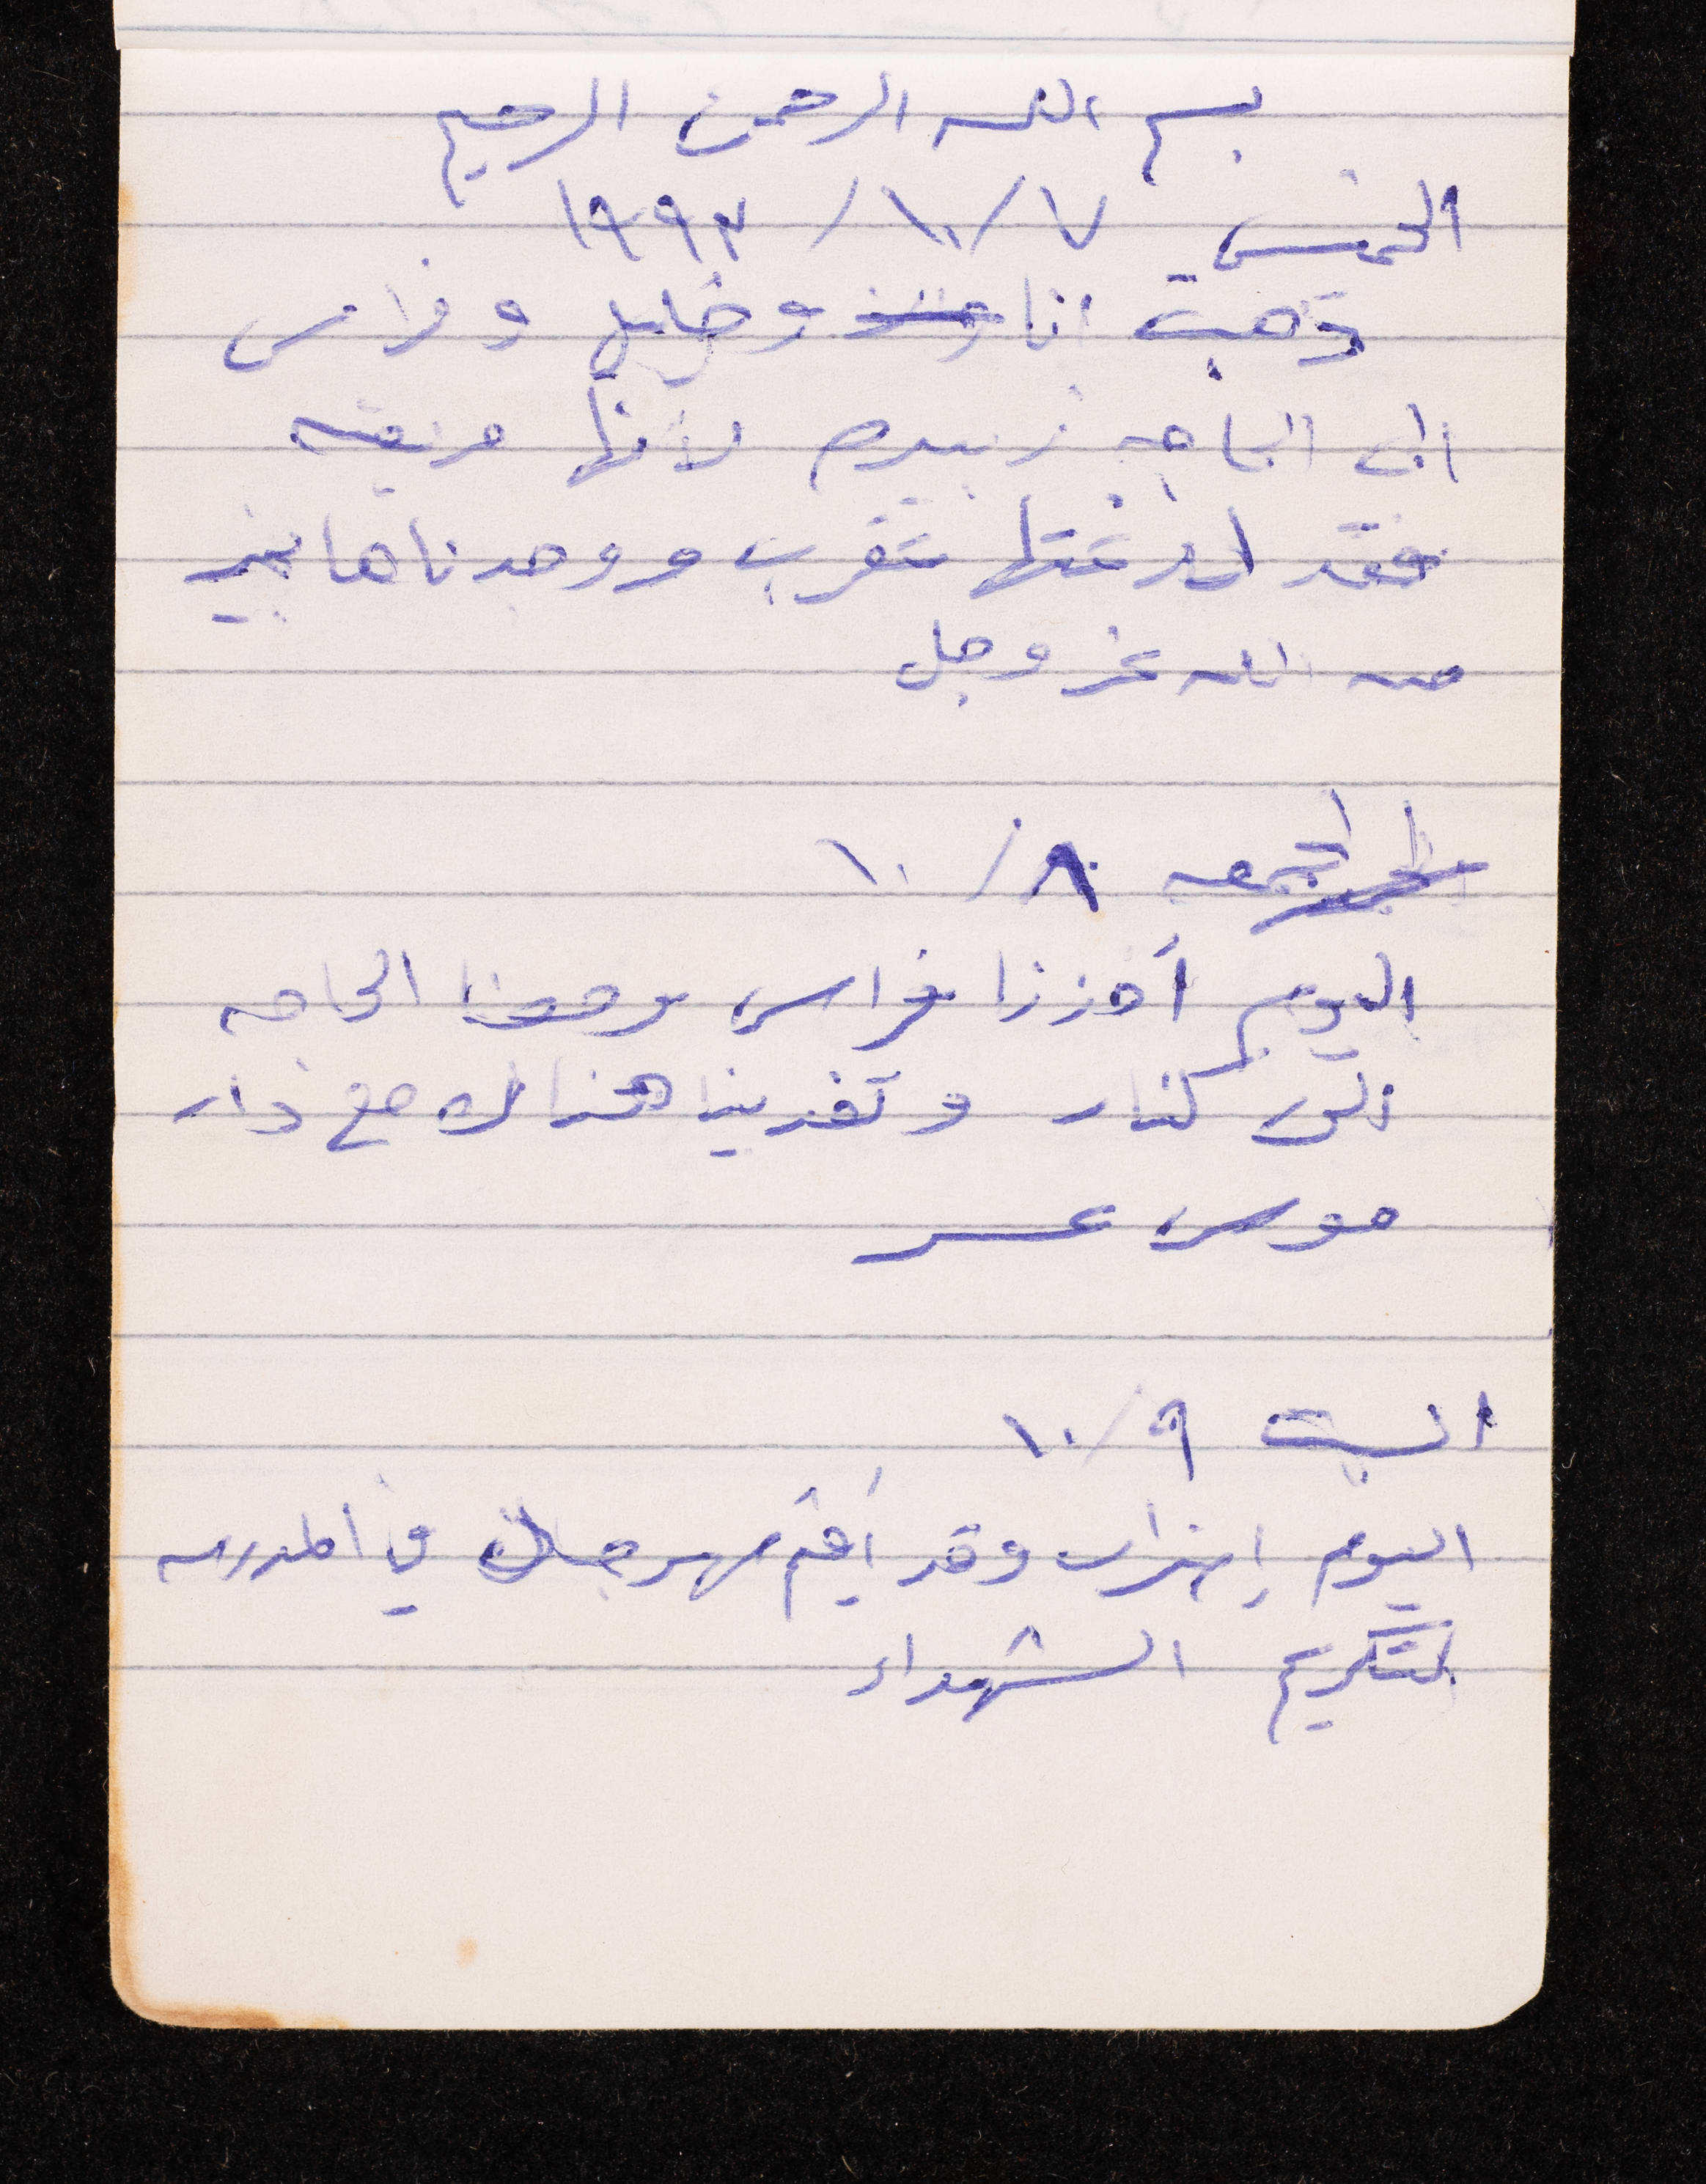 بسم الله الرحمن الرحيم
الخميس ٧/١٠/١٩٩٣
ذهبت انا وخليل وفراس
الى الحاجه زبيده لأنها مريضه
فقد لدغتها عقرب ووجدناها بخير
من الله عز وجل
الجمعه ٨/١٠
اليوم أخذنا فراس ومعنا الحاجه
الى كنار وتغدينا هناك مع دار
موسى عمر
السبت ٩/١٠
اليوم إضراب وقد أقيم مهرجان في المدرسه
لتكريم الشهداء